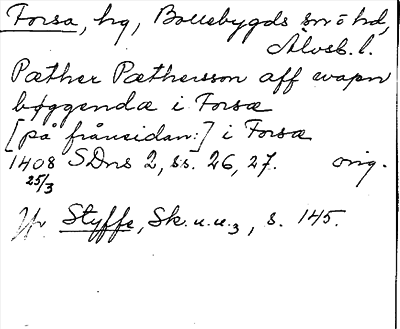 Forsa, hg, Bollebygds sn o hd,
Älvsb. l.
Pæther Pæthersson aff wapn
bøggendæ i Forsæ
[på frånsidan:] i Forsæ
1408 SDns 2, ss. 26, 27. orig.
25/3
Jfr Styffe, Sk. u. u.3, s. 145.